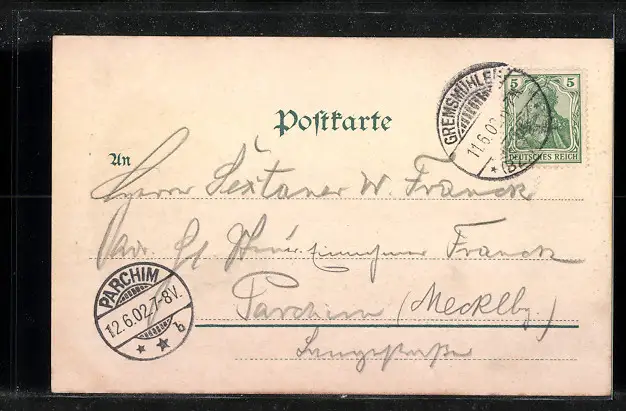 GREMSMÜHLEN
11.6.02
* (BZ
5 5
DEUTSCHES REICH
Postkarte
An
Herrn Sextaner W. Franck
Adr. Franck
PARCHIM
12.6.02.7-8V.
* * b
Parchim (Mecklbg.
Langestraße